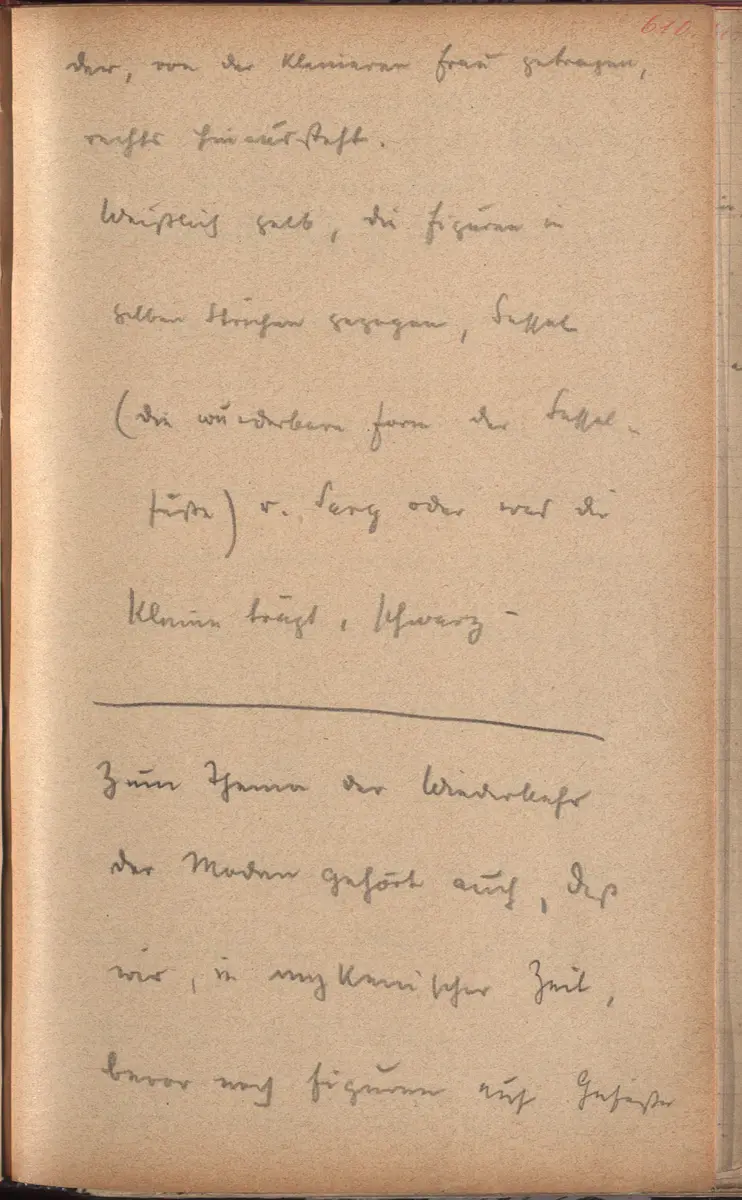 610.
der, von der kleineren Frau getragen,
rechts hinaussteht.
Weißlich gelb, die Figuren in
gelben Strichen gezogen, Sessel
(die wunderbare Form der Sessel-
füße) u. Sarg oder was die
Kleine trägt, schwarz –
Zum Thema der Wiederkehr
der Moden gehört auch, daß
wir, in mykenischer Zeit,
bevor noch Figuren auf Gefäße